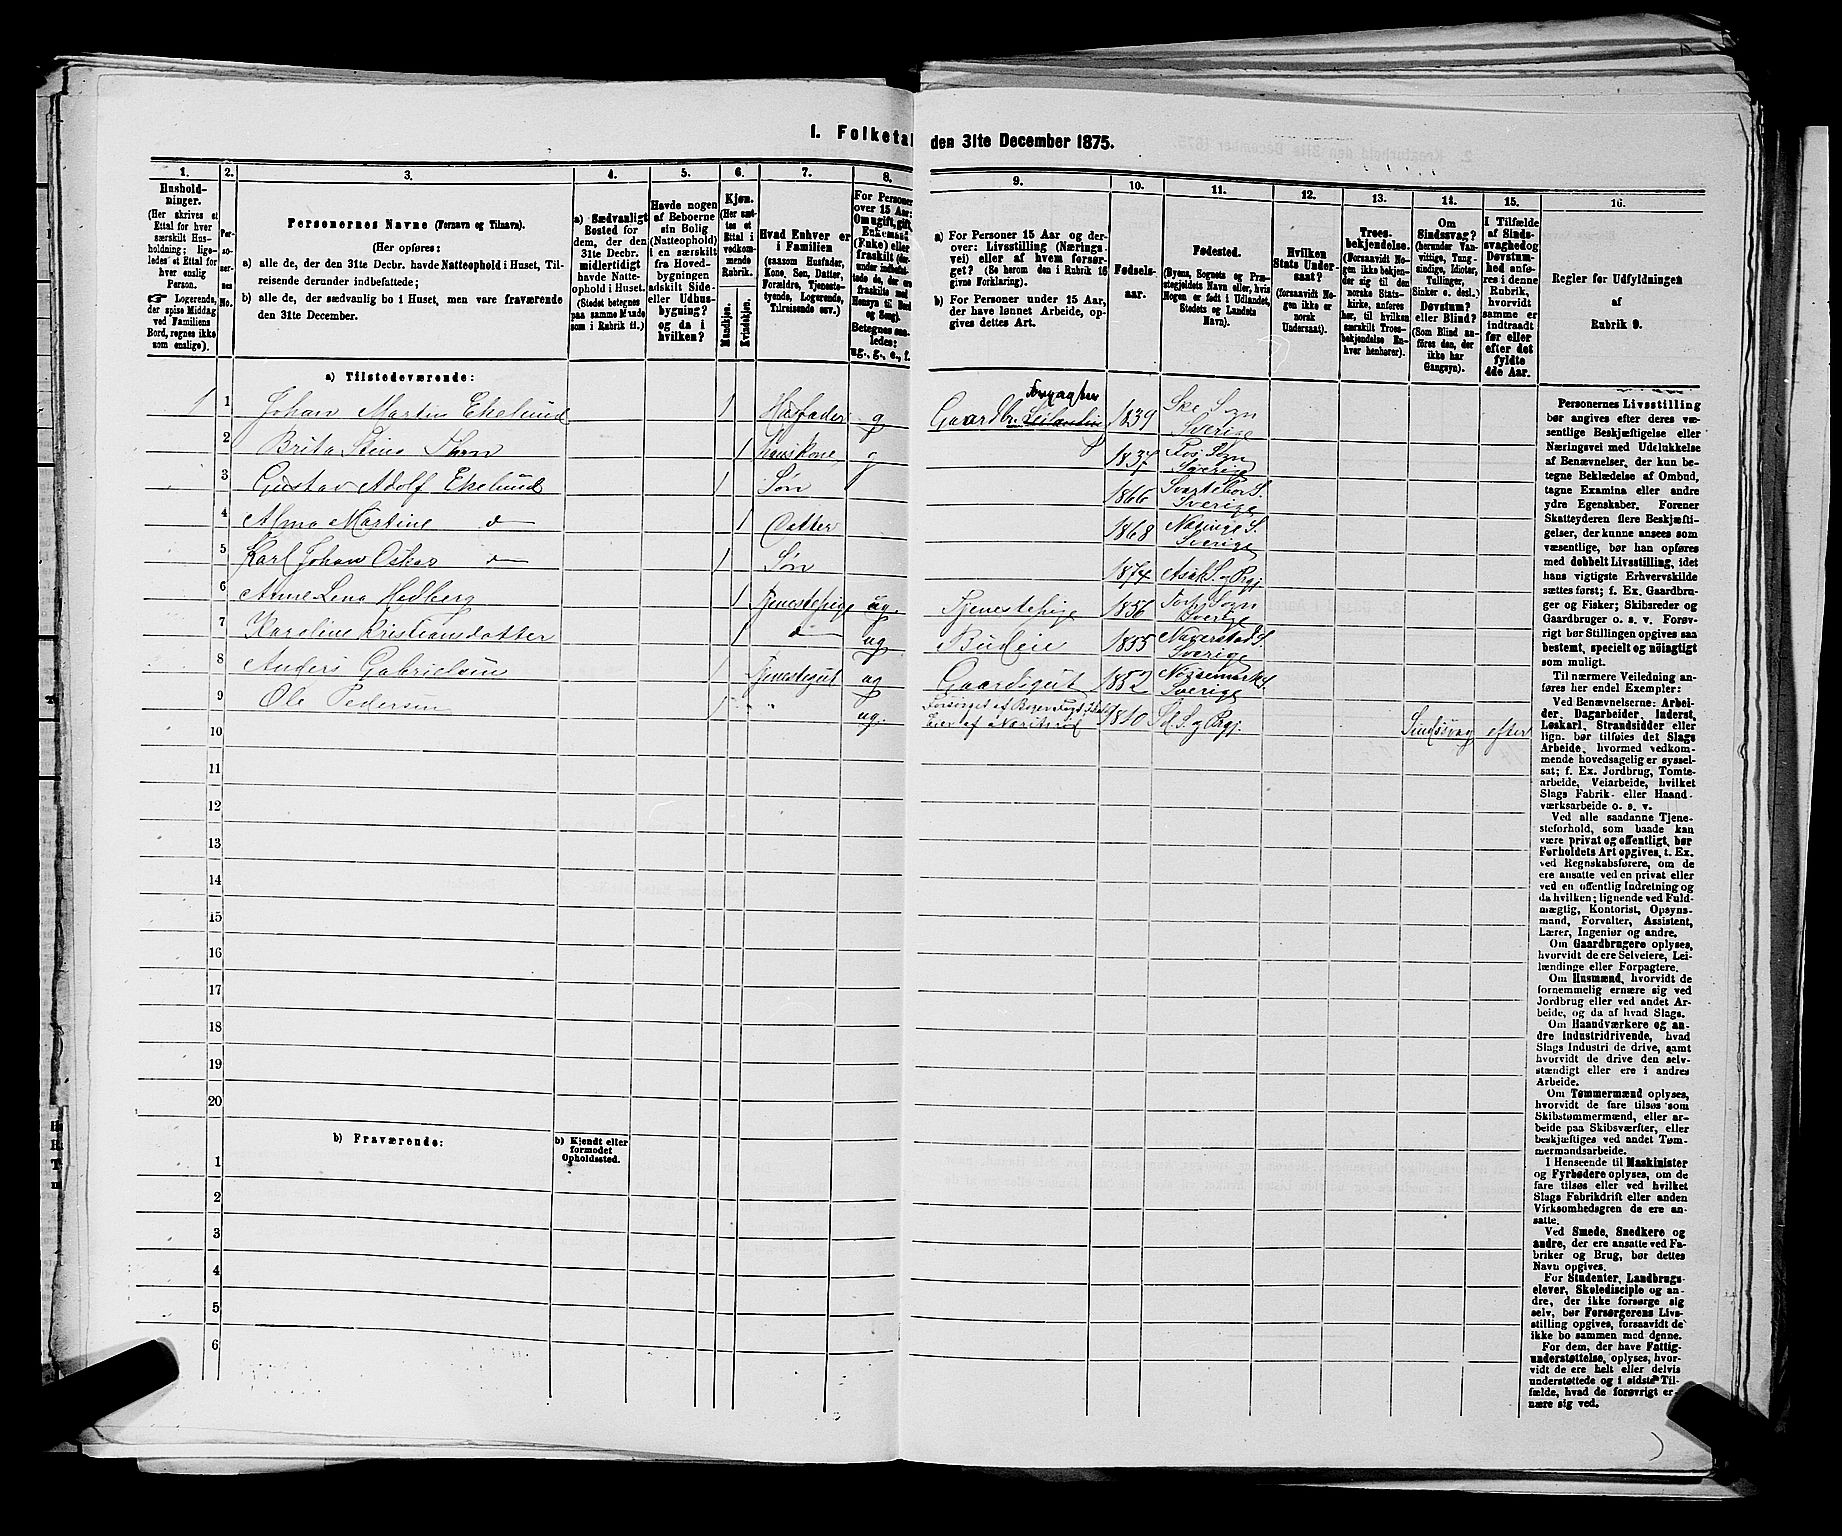 1. Folketal den 31te December 1875.
1.
Hushold-
ninger.
(Her skrives et
Ettal for hver
særskilt Hus-
holdning; lige-
ledes et Ettal for
hver enslig
Person.
☞ Logerende,
der spise Middag
ved Familiens
Bord, regnes ikke
som enslige).
2.
Per-
so-
ner-
nes
No.
3.
Personernes Navne (Fornavn og Tilnavn).
(Her opføres:
a) alle de, der den 31te Decbr. havde Natteophold i Huset, Til-
reisende derunder indbefattede;
b) alle de, der sædvanlig bo i Huset, men vare fraværende
den 31te December.
4.
a) Sædvanligt
Bosted for
dem, der den
31te Decbr.
midlertidigt
havde Natte-
ophold i Huset.
(Stedet betegnes
paa samme Maade
som i Rubrik 11.)
5.
Havde nogen
af Beboerne
sin Bolig
(Natteophold)
i en særskilt
fra Hoved-
bygningen
adskilt Side-
eller Udhus-
bygning?
og da i
hvilken?
6.
Kjøn.
(Her sæt-
tes et
Ettal i
vedkom-
mende
Rubrik.
Mandkjøn.
Kvindekjøn.
7.
Hvad Enhver er
i Familien
(saasom Husfader,
Kone, Søn, Datter,
Forældre, Tjeneste-
tyende, Logerende,
Tilreisende osv.)
8.
For Personer
over 15 Aar:
Om ugift, gift,
Enkemand
(Enke) eller
fraskilt
Betegnes saa-
ledes:
ug., g., e., f.
9.
a) For Personer 15 Aar og der-
over: Livsstilling (Nærings-
vei) eller af hvem forsør-
get? (Se herom den i Rubrik 16
givne Forklaring).
b) For Personer under 15 Aar,
der have lønnet Arbeide, op-
gives dettes Art.
10.
Fødsels-
aar.
11.
Fødested.
(Byens, Sognets og Præ-
stegjeldets Navn eller, hvis
Nogen er født i Udlandet,
Stedets og Landets
Navn).
12.
Hvilken
Stats Under-
saat?
(forsaavidt No-
gen ikke er
norsk
Undersaat).
13.
Troes-
bekjendelse.
(Forsaavidt No-
gen ikke bekjen-
der sig til den
norske Stats-
kirke, anføres
her, til hvilken
særskilt Troes-
bekjendelse En-
hver henhører).
14.
Om
Sindssvag?
(herunder Van-
vittige, Tung-
sindige, Idioter,
Tullinger,
Sinker o. desl.)
Døvstum?
eller Blind?
(Som Blind an-
føres den, der
ikke har
Gangsyn).
15.
I Tilfælde
af Sinds-
svaghed og
Døvstum-
hed anfø-
res i denne
Rubrik,
hvorvidt
samme er
indtraadt
før eller
efter det
fyldte
4de Aar.
16.
Regler for Udfyldningen
af
Rubrik 9.
a) Tilstedeværende:
1 1 Johan Martin Ekelund 1 Husfader g Gaardbr. Forpagter 1839 Ske Sogn Sverige
2 Brita Stina 1 Huskone g 1837 Fos Sogn Sverige
3 Gustav Adolf Ekelund 1 Søn 1866 Svarteborg S. Sverige
4 Alma Martine do 1 Datter 1868 Næsinge S. Sverige
5 Karl Johan Oskar do 1 Søn 1874 Asak S. og Prgj.
6 Anne Lena Hedberg 1 Tjenestepige ug. Tjenestepige 1856 Sogn Sverige
7 Karoline Kristiansdatter 1 do ug Budeie 1855 Naverstad S. Sverige
8 Anders Gabrielsen 1 Tjenestegut ug Gaardsgut 1852 Nössemark S. Sverige
9 Ole Pedersen 1 " ug. Forsørget af 1810 Id S. og Prgj. Sindssvag efter
10
11
12
13
14
15
16
17
18
19
20
b) Fraværende:
b) Kjendt eller
formodet
Opholdssted.
1
2
3
4
5
6
Personernes Livsstilling
bør angives efter deres væ-
sentlige Beskjæftigelse eller
Næringsvei med Udelukkelse
af Benævnelser, der kun be-
tegne Beklædelse af Ombud,
tagne Examina eller andre
ydre Egenskaber. Forener
Skatteyderen flere Beskjæfti-
gelser, der kunne ansees som
væsentlige, bør han opføres
med dobbelt Livsstilling, idet
hans vigtigste Erhvervskilde
sættes først; f. Ex. Gaardbru-
ger og Fisker; Skibsreder og
Gaardbruger o. s. v. Forøv-
rigt bør Stillingen opgives saa
bestemt, specielt og nøiagtigt
som muligt.
Til nærmere Veiledning an-
føres her endel Exempler:
Ved Benævnelserne: Arbei-
der, Dagarbeider, Inderst,
Løskarl, Strandsidder eller
lign. bør tilføies det Slags
Arbeide, hvormed vedkom-
mende hovedsagelig er syssel-
sat; f. Ex. Jordbrug, Tomte-
arbeide, Veiarbeide, hvilket
Slags Fabrik- eller Haand-
værksarbeide o. s. v.
Ved alle saadanne Tjene-
steforhold, som baade kan
være privat og offentligt, bør
Forholdets Art opgives, t. Ex.
ved Regnskabsførere, om de
ere ansatte ved en privat eller
ved en offentlig Indretning og
da hvilken; lignende ved Fuld-
mægtig, Kontorist, Opsyns-
mand, Forvalter, Assistent,
Lærer, Ingeniør og andre.
Om Gaardbrugere oplyses,
hvorvidt de ere Selveiere, Lei-
lændinge eller Forpagtere.
Om Husmænd, hvorvidt de
fornemmelig ernære sig ved
Jordbrug eller ved andet Ar-
beide, og da af hvad Slags.
Om Haandværkere og an-
dre Industridrivende, hvad
Slags Industri de drive, samt
hvorvidt de drive den selv-
stændigt eller ere i andres
Arbeide.
Om Tømmermænd oplyses,
hvorvidt de fare tilsøs som
Skibstømmermænd, eller ar-
beide paa Skibsværfter, eller
beskjæftiges ved andet Tøm-
mermandsarbeide.
I Henseende til Maskinister
og Fyrbødere oplyses, om de
fare tilsøs eller ved hvilket
Slags Fabrikdrift eller anden
Virksomhedsgren de ere an-
satte.
Ved Smede, Snedkere og
andre, der ere ansatte ved Fa-
briker og Brug, bør dettes
Navn opgives.
For Studenter, Landbrugs-
elever, Skoledisciple og an-
dre, der ikke forsørge sig
selv, bør Forsørgerens Livs-
stilling opgives, forsaavidt de
ikke bo sammen med denne.
For dem, der have Fattig-
understøttelse, oplyses, hvor-
vidt de ere helt eller delvis
understøttede og i sidste Til-
fælde, hvad de forøvrigt er-
nære sig ved.